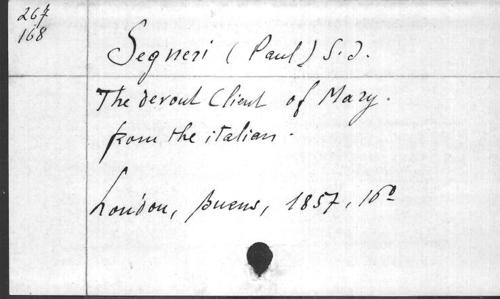 267
168
Segneri (Paul) S.J.
The devout Client of Mary.
from the italian.
London, Burns, 1857, 16º